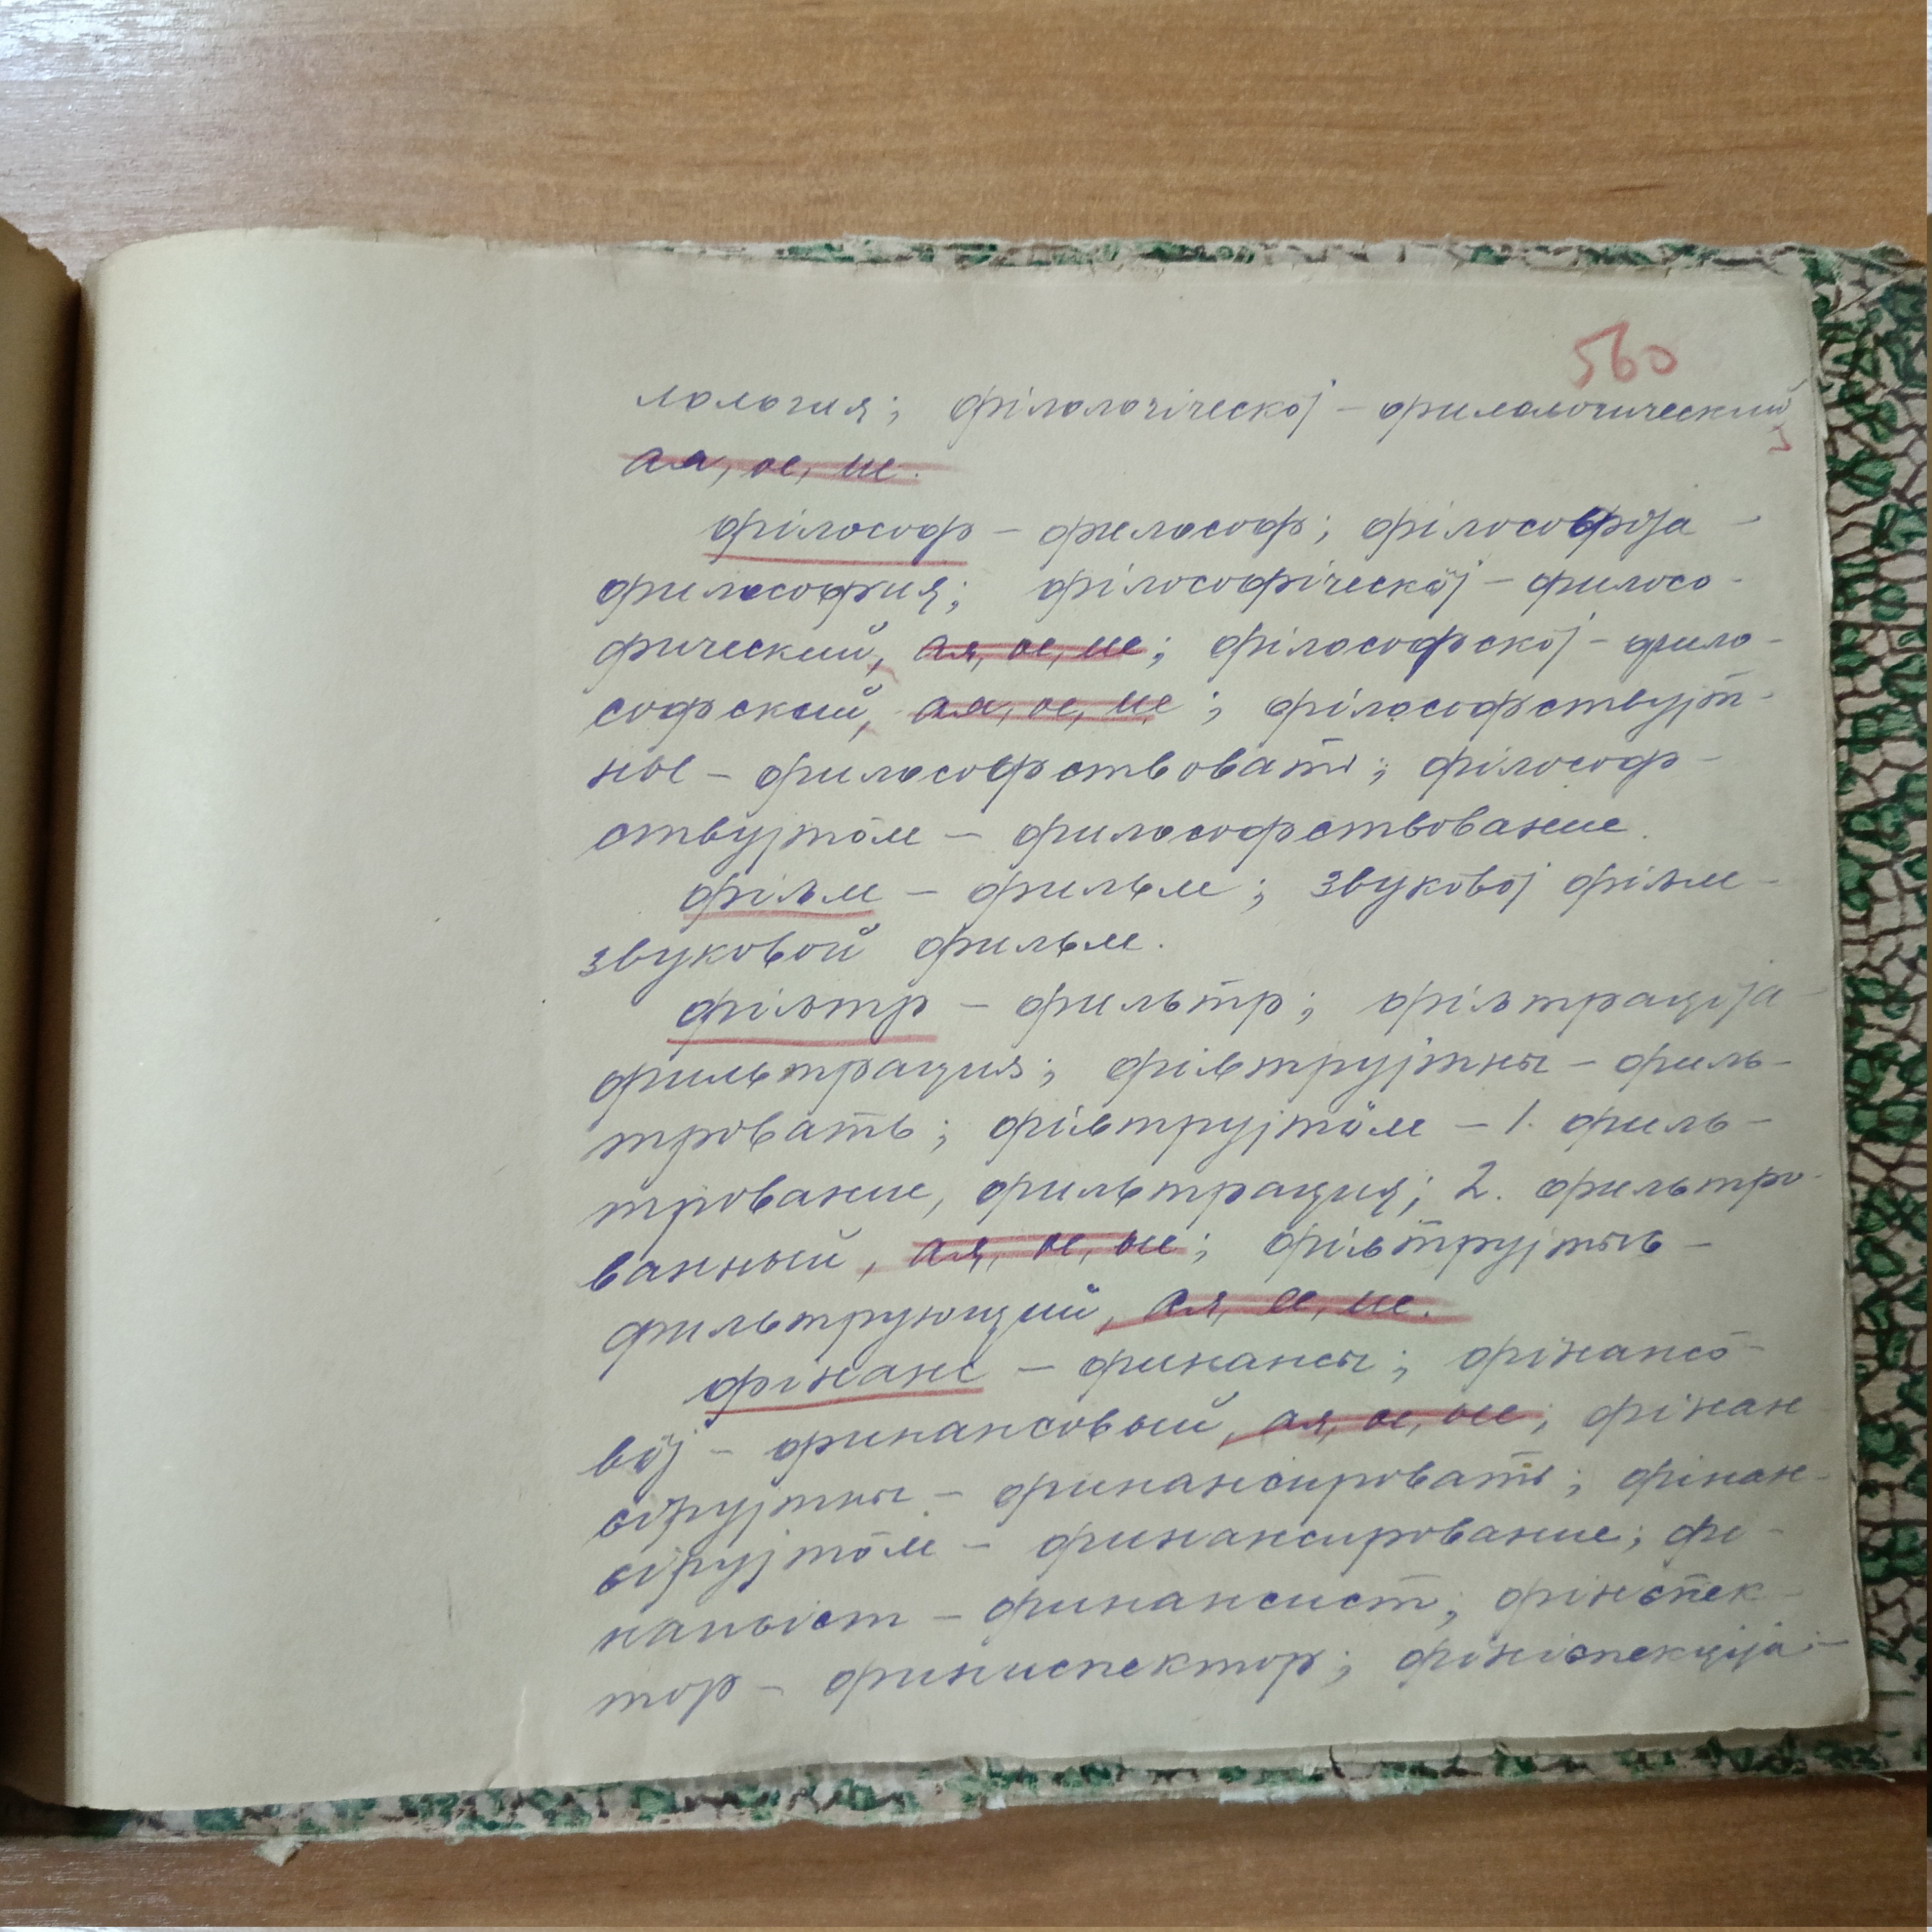 560
лология; філологіческӧј – филологический
ая, ое, ие.
філософ – философ; філософіја –
философия; філософіческӧј – филосо-
фический, ая, ое, ие; філософскӧј – фило-
софский, ая, ое, ие; філософствујт-
ны – философствовать; філософ-
ствујтӧм – философствование.
фільм – фильм; звуковӧј фільм –
звуковой фильм.
фільтр – фильтр; фільтраціја –
фильтрация; фільтрујтны – филь-
тровать; фільтрујтӧм – 1. филь-
трование, фильтрация; 2. фильтро-
ванный, ая, ое, ые; фільтрујтысь –
фильтрующий, ая, ее, ие.
фінанс – финансы; фінансӧ-
вӧј – финансовый, ая, ое, ые; фінан
сірујтны – финансировать; фінан-
сірујтӧм – финансирование; фі-
нансіст – финансист; фінспек-
тор – фининспектор; фініспекціја –